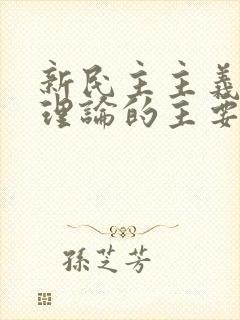 新民主主義
理論的主要
孫芝芳